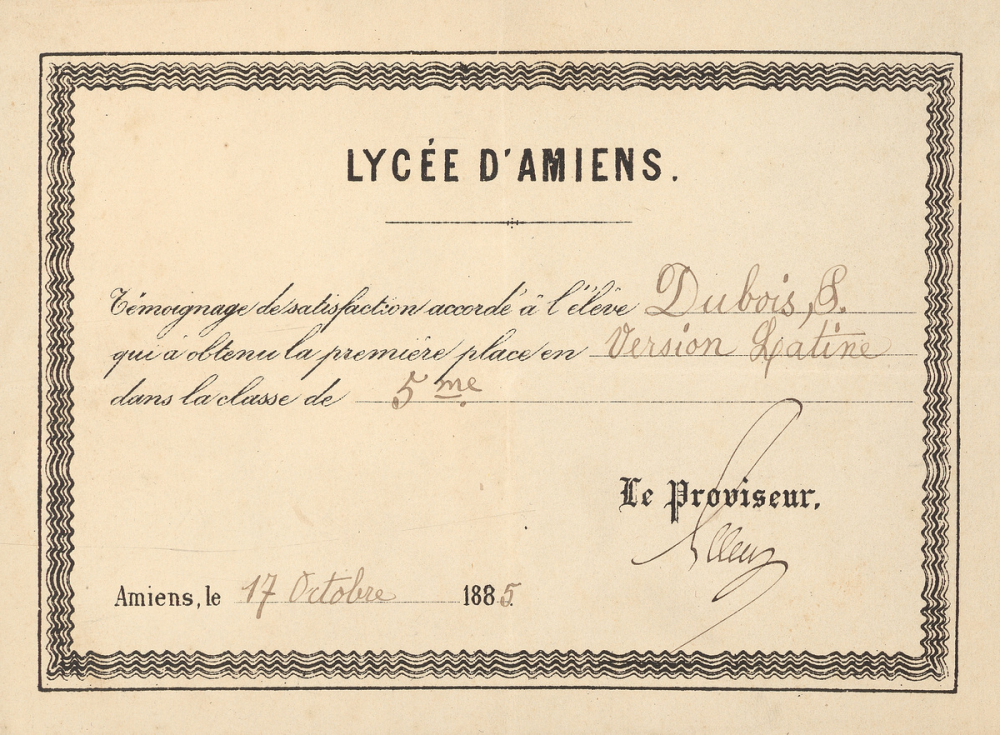 LYCÉE D'AMIENS.
Témoignage de satisfaction accordé à l'élève Dubois, S.
qui a obtenu la première place en Version Latine
dans la classe de 5me
Le Proviseur.
Amiens, le 17 Octobre 1885.